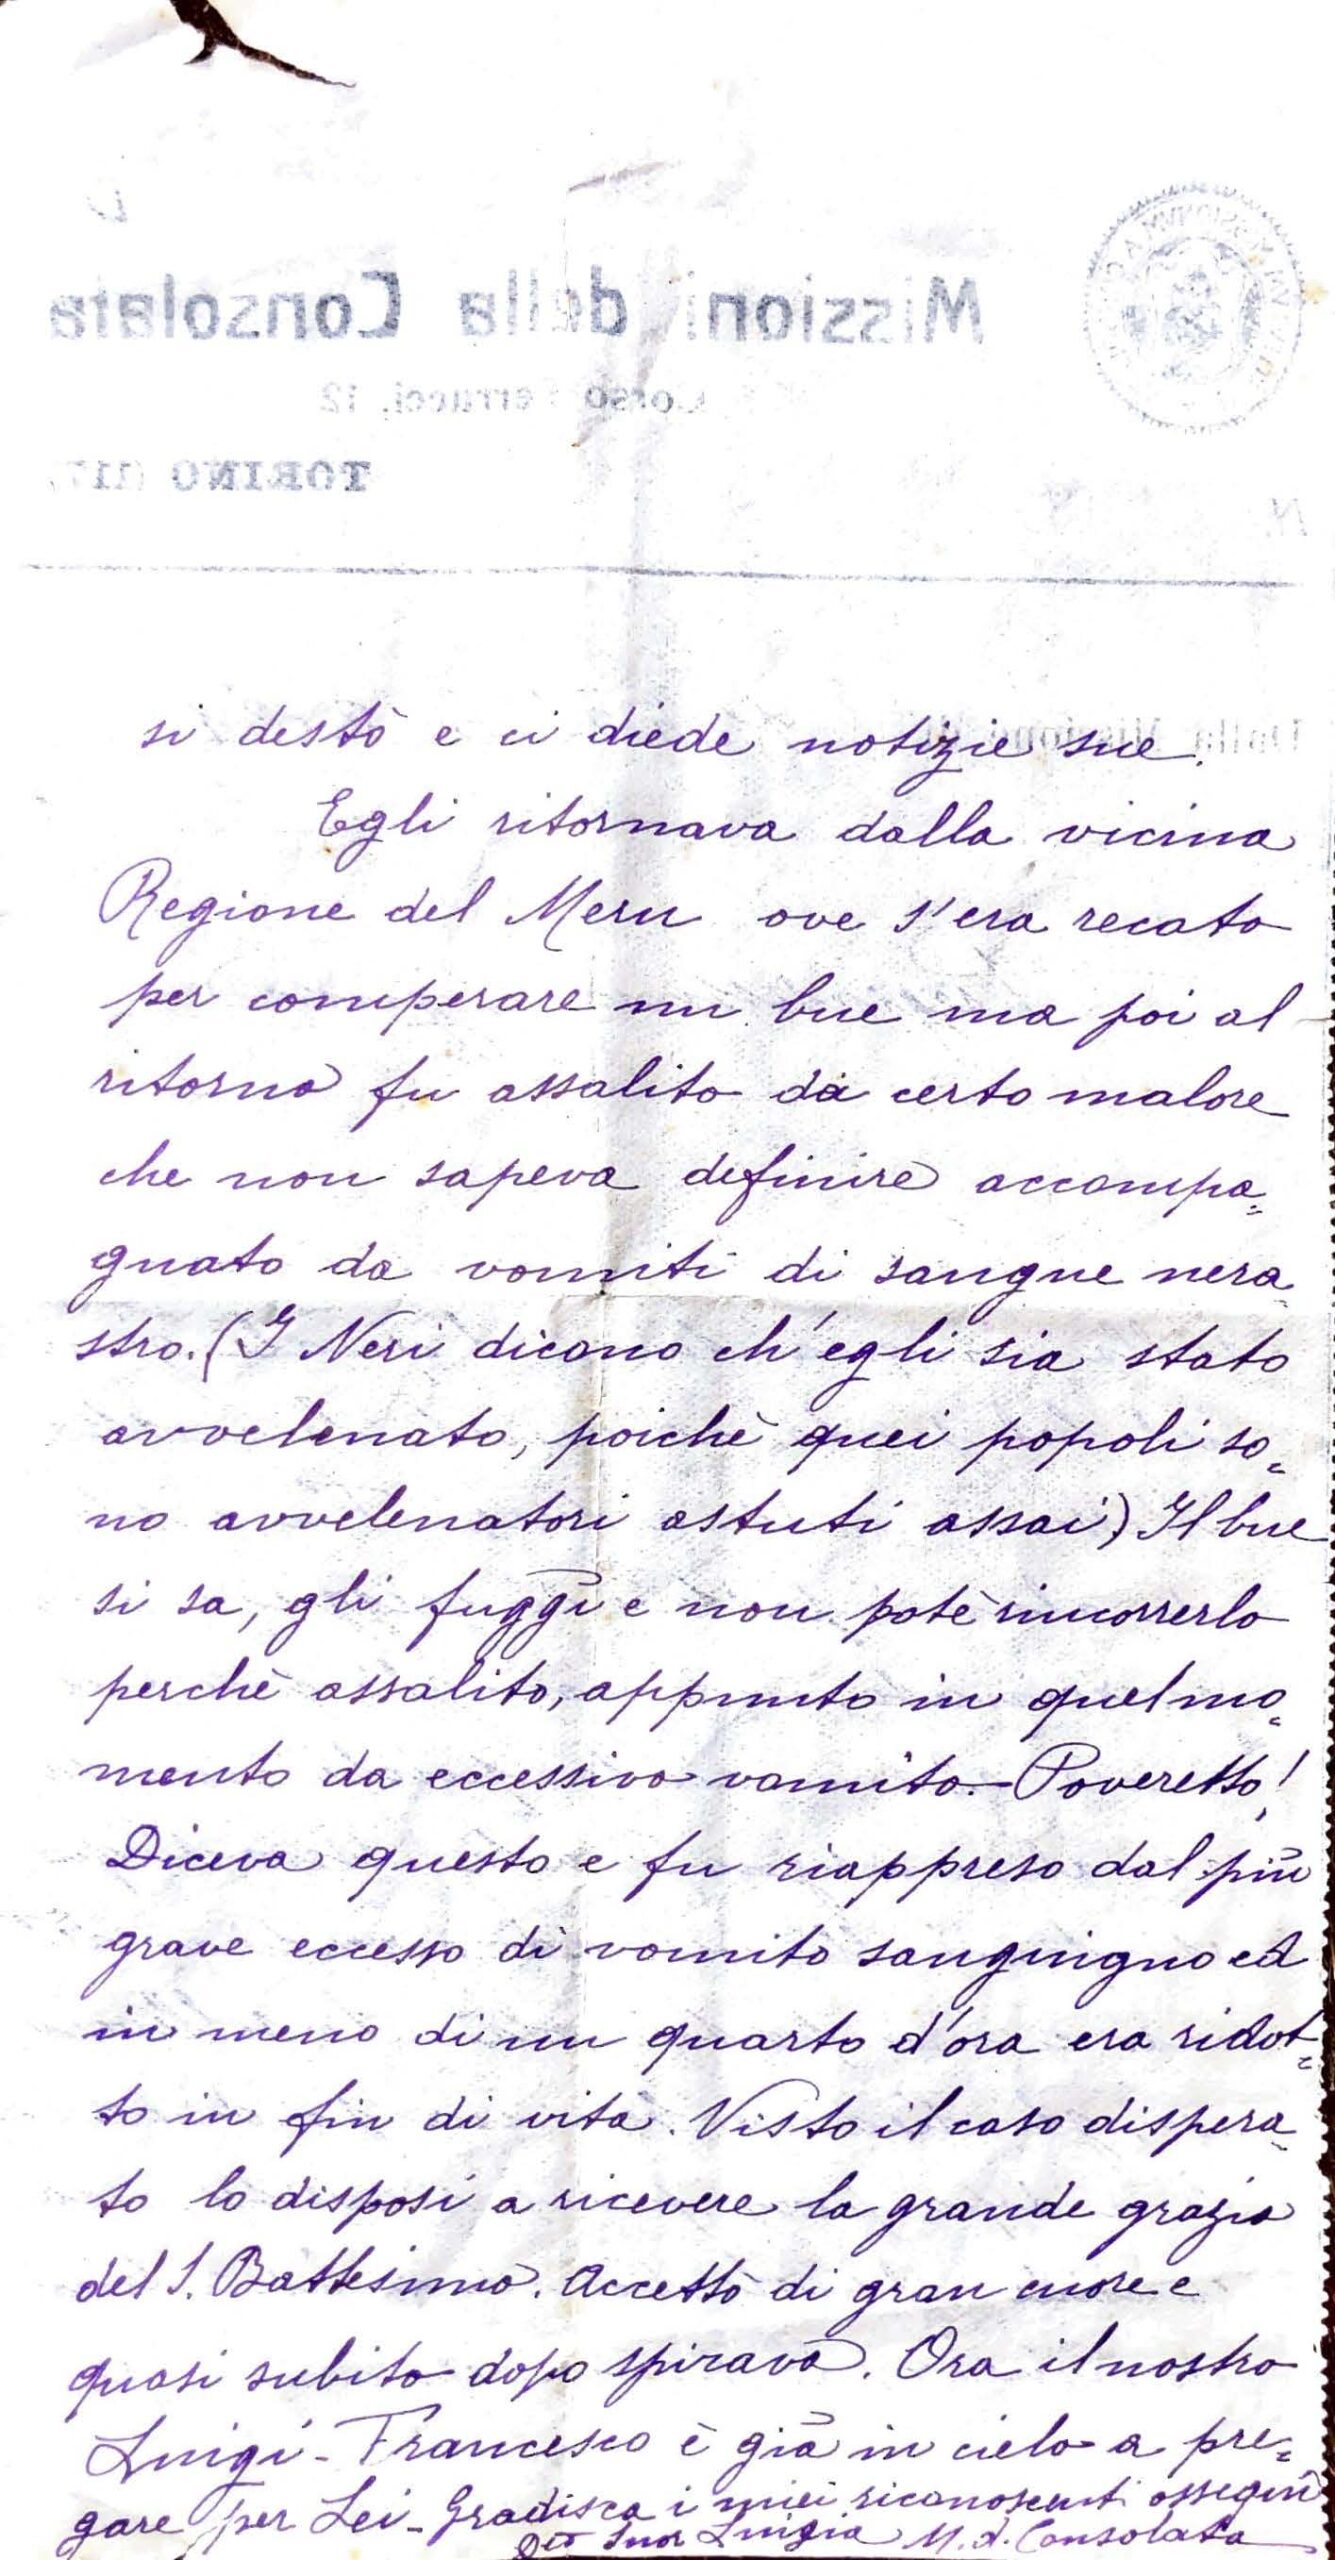 Missioni della Consolata
Corso Ferrucci, 12
TORINO (11
Dalla Missione di
si destò e ci diede notizie sue.
Egli ritornava dalla vicina
Regione del Meru ove s'era recato
per comperare un bue ma poi al
ritorno fu assalito da certo malore
che non sapeva definire accompa=
gnato da vomiti di sangue nera
stro. (I Neri dicono ch'egli sia stato
avvelenato, poichè quei popoli so=
no avvelenatori astuti assai) Il bue
si sa, gli fuggì e non potè rincorrerlo
perchè assalito, appunto in quel mo=
mento da eccessivo vomito. - Poveretto!
Diceva questo e fu riappreso dal più
grave eccesso di vomito sanguigno ed
in meno di un quarto d'ora era ridot=
to in fin di vita. Visto il caso dispera
to lo disposi a ricevere la grande grazia
del S. Battesimo. Accettò di gran cuore e
quasi subito dopo spirava. Ora il nostro
Luigi - Francesco è già in cielo a pre=
gare per Lei - Gradisca i miei riconoscenti ossequi
Suor Luigia M. d. Consolata